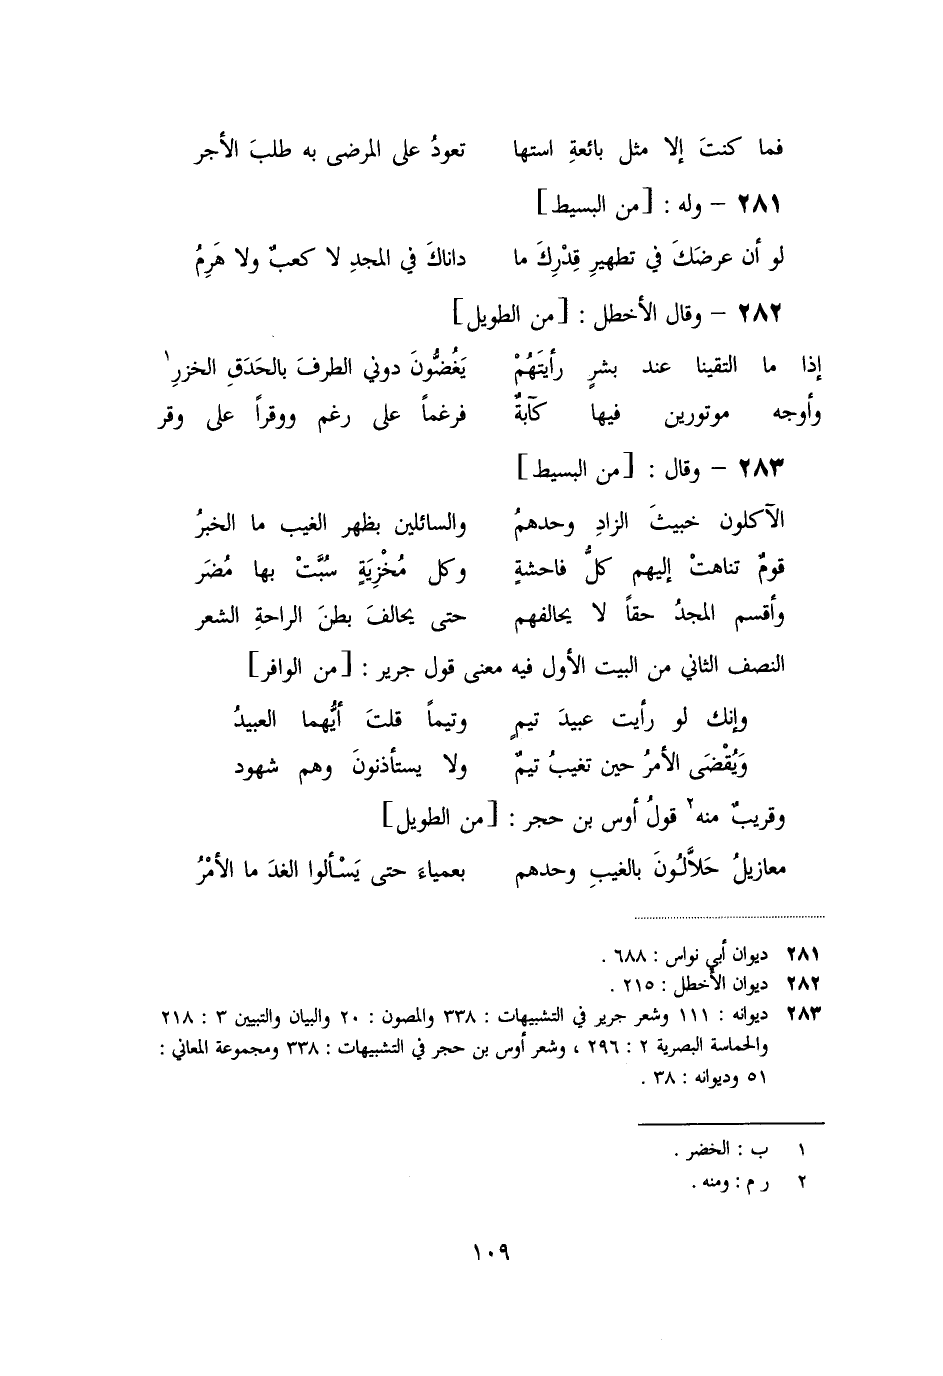 فما كنتَ إلا مثل بائعةِ استها تعودُ على المرضى به طلبَ الأجر
٢٨١ – وله : [من البسيط]
لو أن عرضَكَ في تطهيرِ قِدْرِكَ ما داناكَ في المجدِ لا كعبٌ ولا هَرِمُ
٢٨٢ – وقال الأخطل : [من الطويل]
إذا ما التقينا عند بشرٍ رأيتَهُمْ يَغُضُّونَ دوني الطرفَ بالحَدَقِ الخزرِ١
وأوجه موتورين فيها كآبةٌ فرغماً على رغم ووقراً على وقر
٢٨٣ – وقال : [من البسيط]
الآكلون خبيثَ الزادِ وحدهمُ والسائلين بظهر الغيب ما الخبرُ
قومٌ تناهتْ إليهم كلُّ فاحشةٍ وكل مُخْزِيَةٍ سُبَّتْ بها مُضَر
وأقسم المجدُ حقاً لا يحالفهم حتى يحالفَ بطنَ الراحةِ الشعر
النصف الثاني من البيت الأول فيه معنى قول جرير : [من الوافر]
وإنك لو رأيت عبيدَ تيمٍ وتيماً قلتَ أيُّهما العبيدُ
وَيُقْضَى الأمرُ حين تغيبُ تيمٌ ولا يستأذنونَ وهم شهود
وقريبٌ منه٢ قولُ أوس بن حجر : [من الطويل]
معازيلُ حَلاَّلُونَ بالغيبِ وحدهم بعمياءَ حتى يَسْألوا الغدَ ما الأمْرُ
٢٨١ ديوان أبي نواس : ٦٨٨ .
٢٨٢ ديوان الأخطل : ٢١٥ .
٢٨٣ ديوانه : ١١١ وشعر جرير في التشبيهات : ٣٣٨ والمصون : ٢٠ والبيان والتبيين ٣ : ٢١٨
والحماسة البصرية ٢ : ٢٩٦ ، وشعر أوس بن حجر في التشبيهات : ٣٣٨ ومجموعة المعاني :
٥١ وديوانه : ٣٨ .
١ ب : الخضر .
٢ ر م : ومنه .
١٠٩